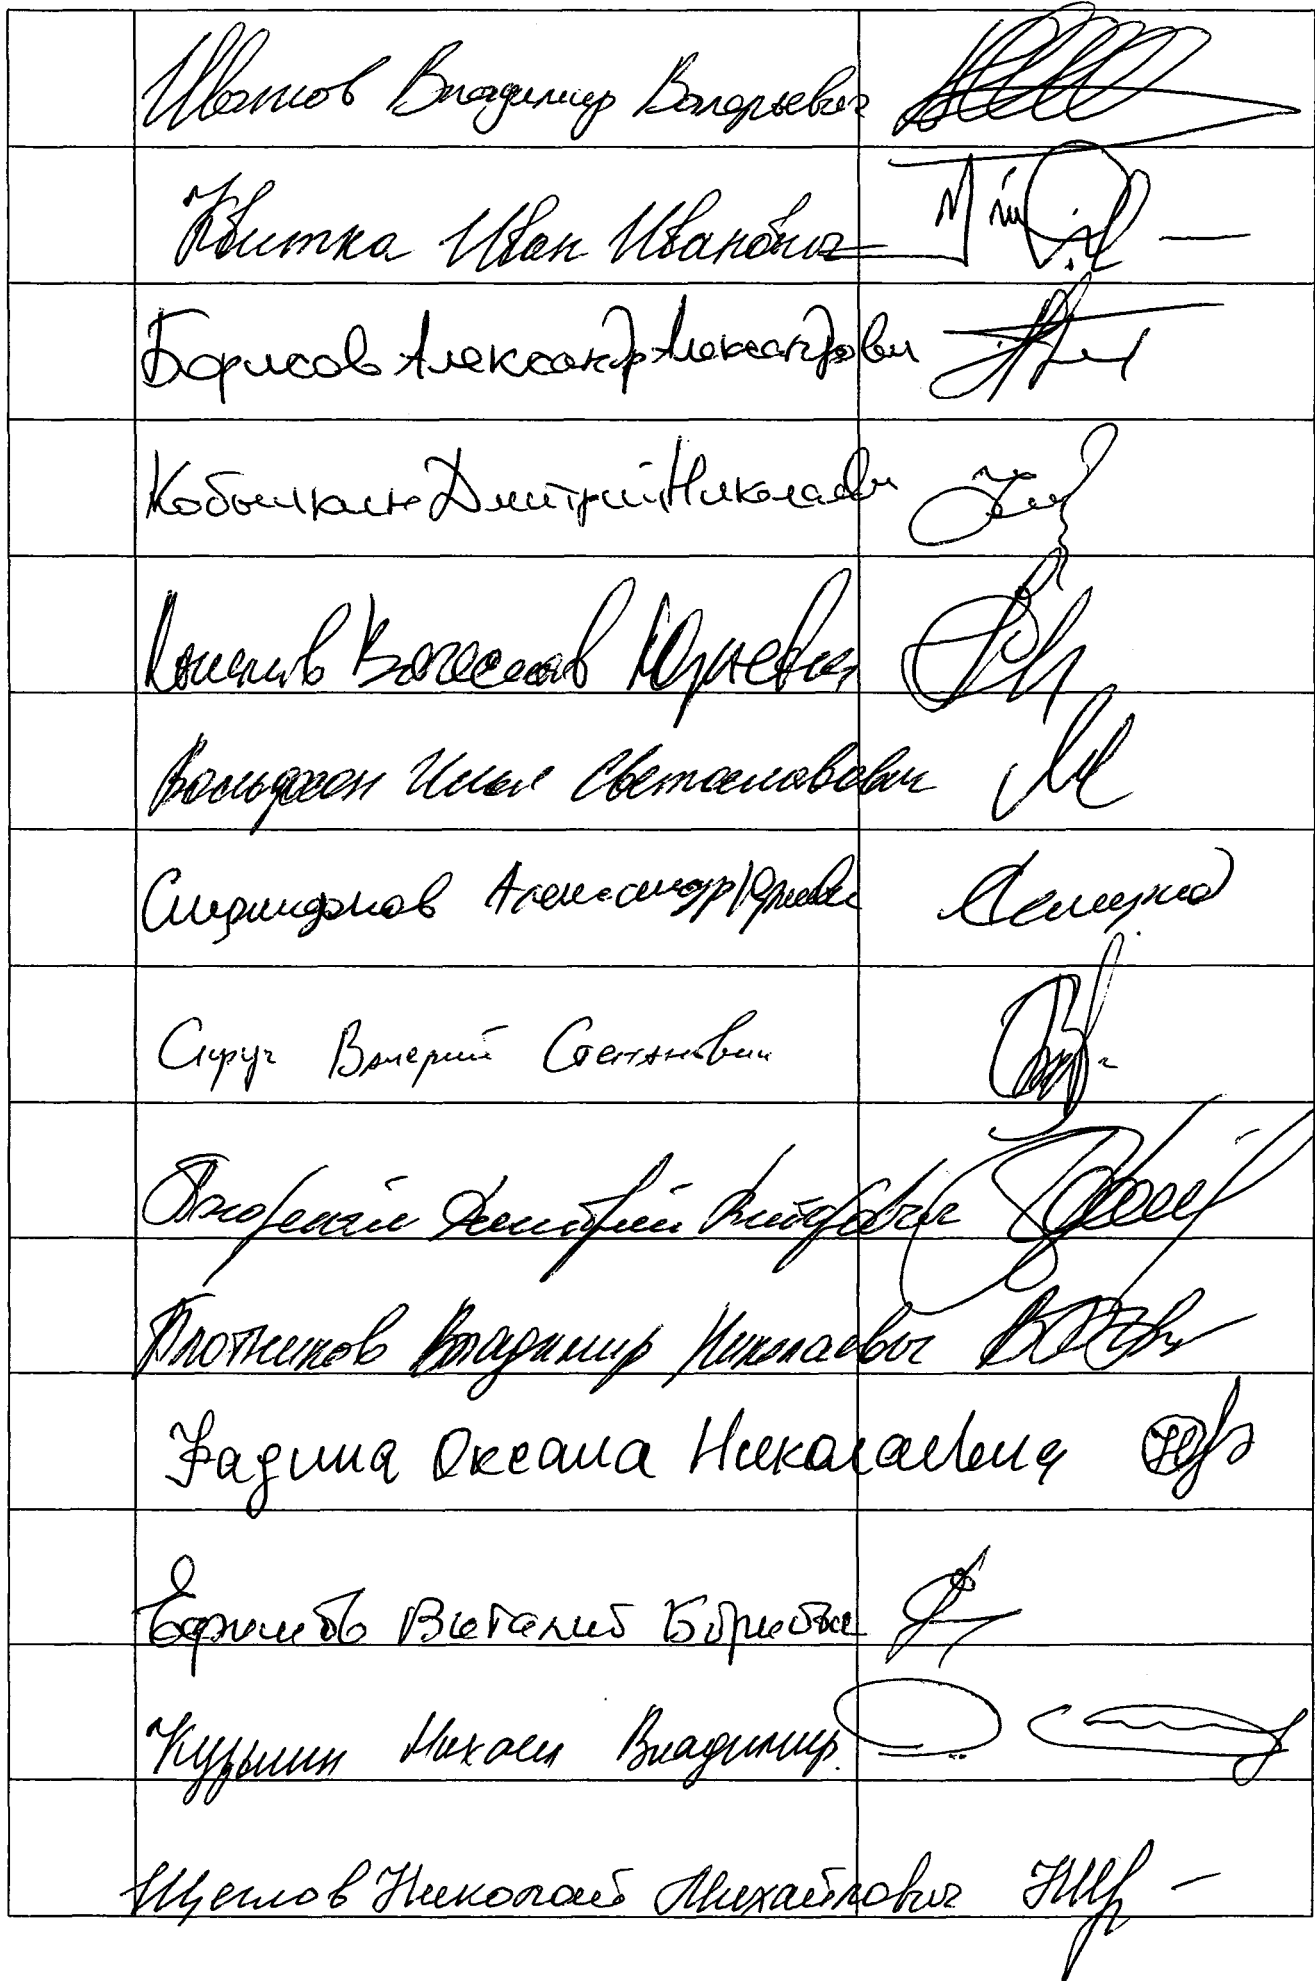 Иванов Владимир Валерьевич
Квитка Иван Иванович
Борисов Александр Александрович
Кобылкин Дмитрий Николаевич
Вячеслав Юрьевич
Вольфсон Илья Светославович
Александр Юрьевич
Скруч Валерий Степанович
Дмитрий Викторович
Плотников Владимир Николаевич
Фадина Оксана Николаевна
Ефимов Виталий Борисович
Кузьмин Михаил Владимир.
Щеглов Николай Михайлович